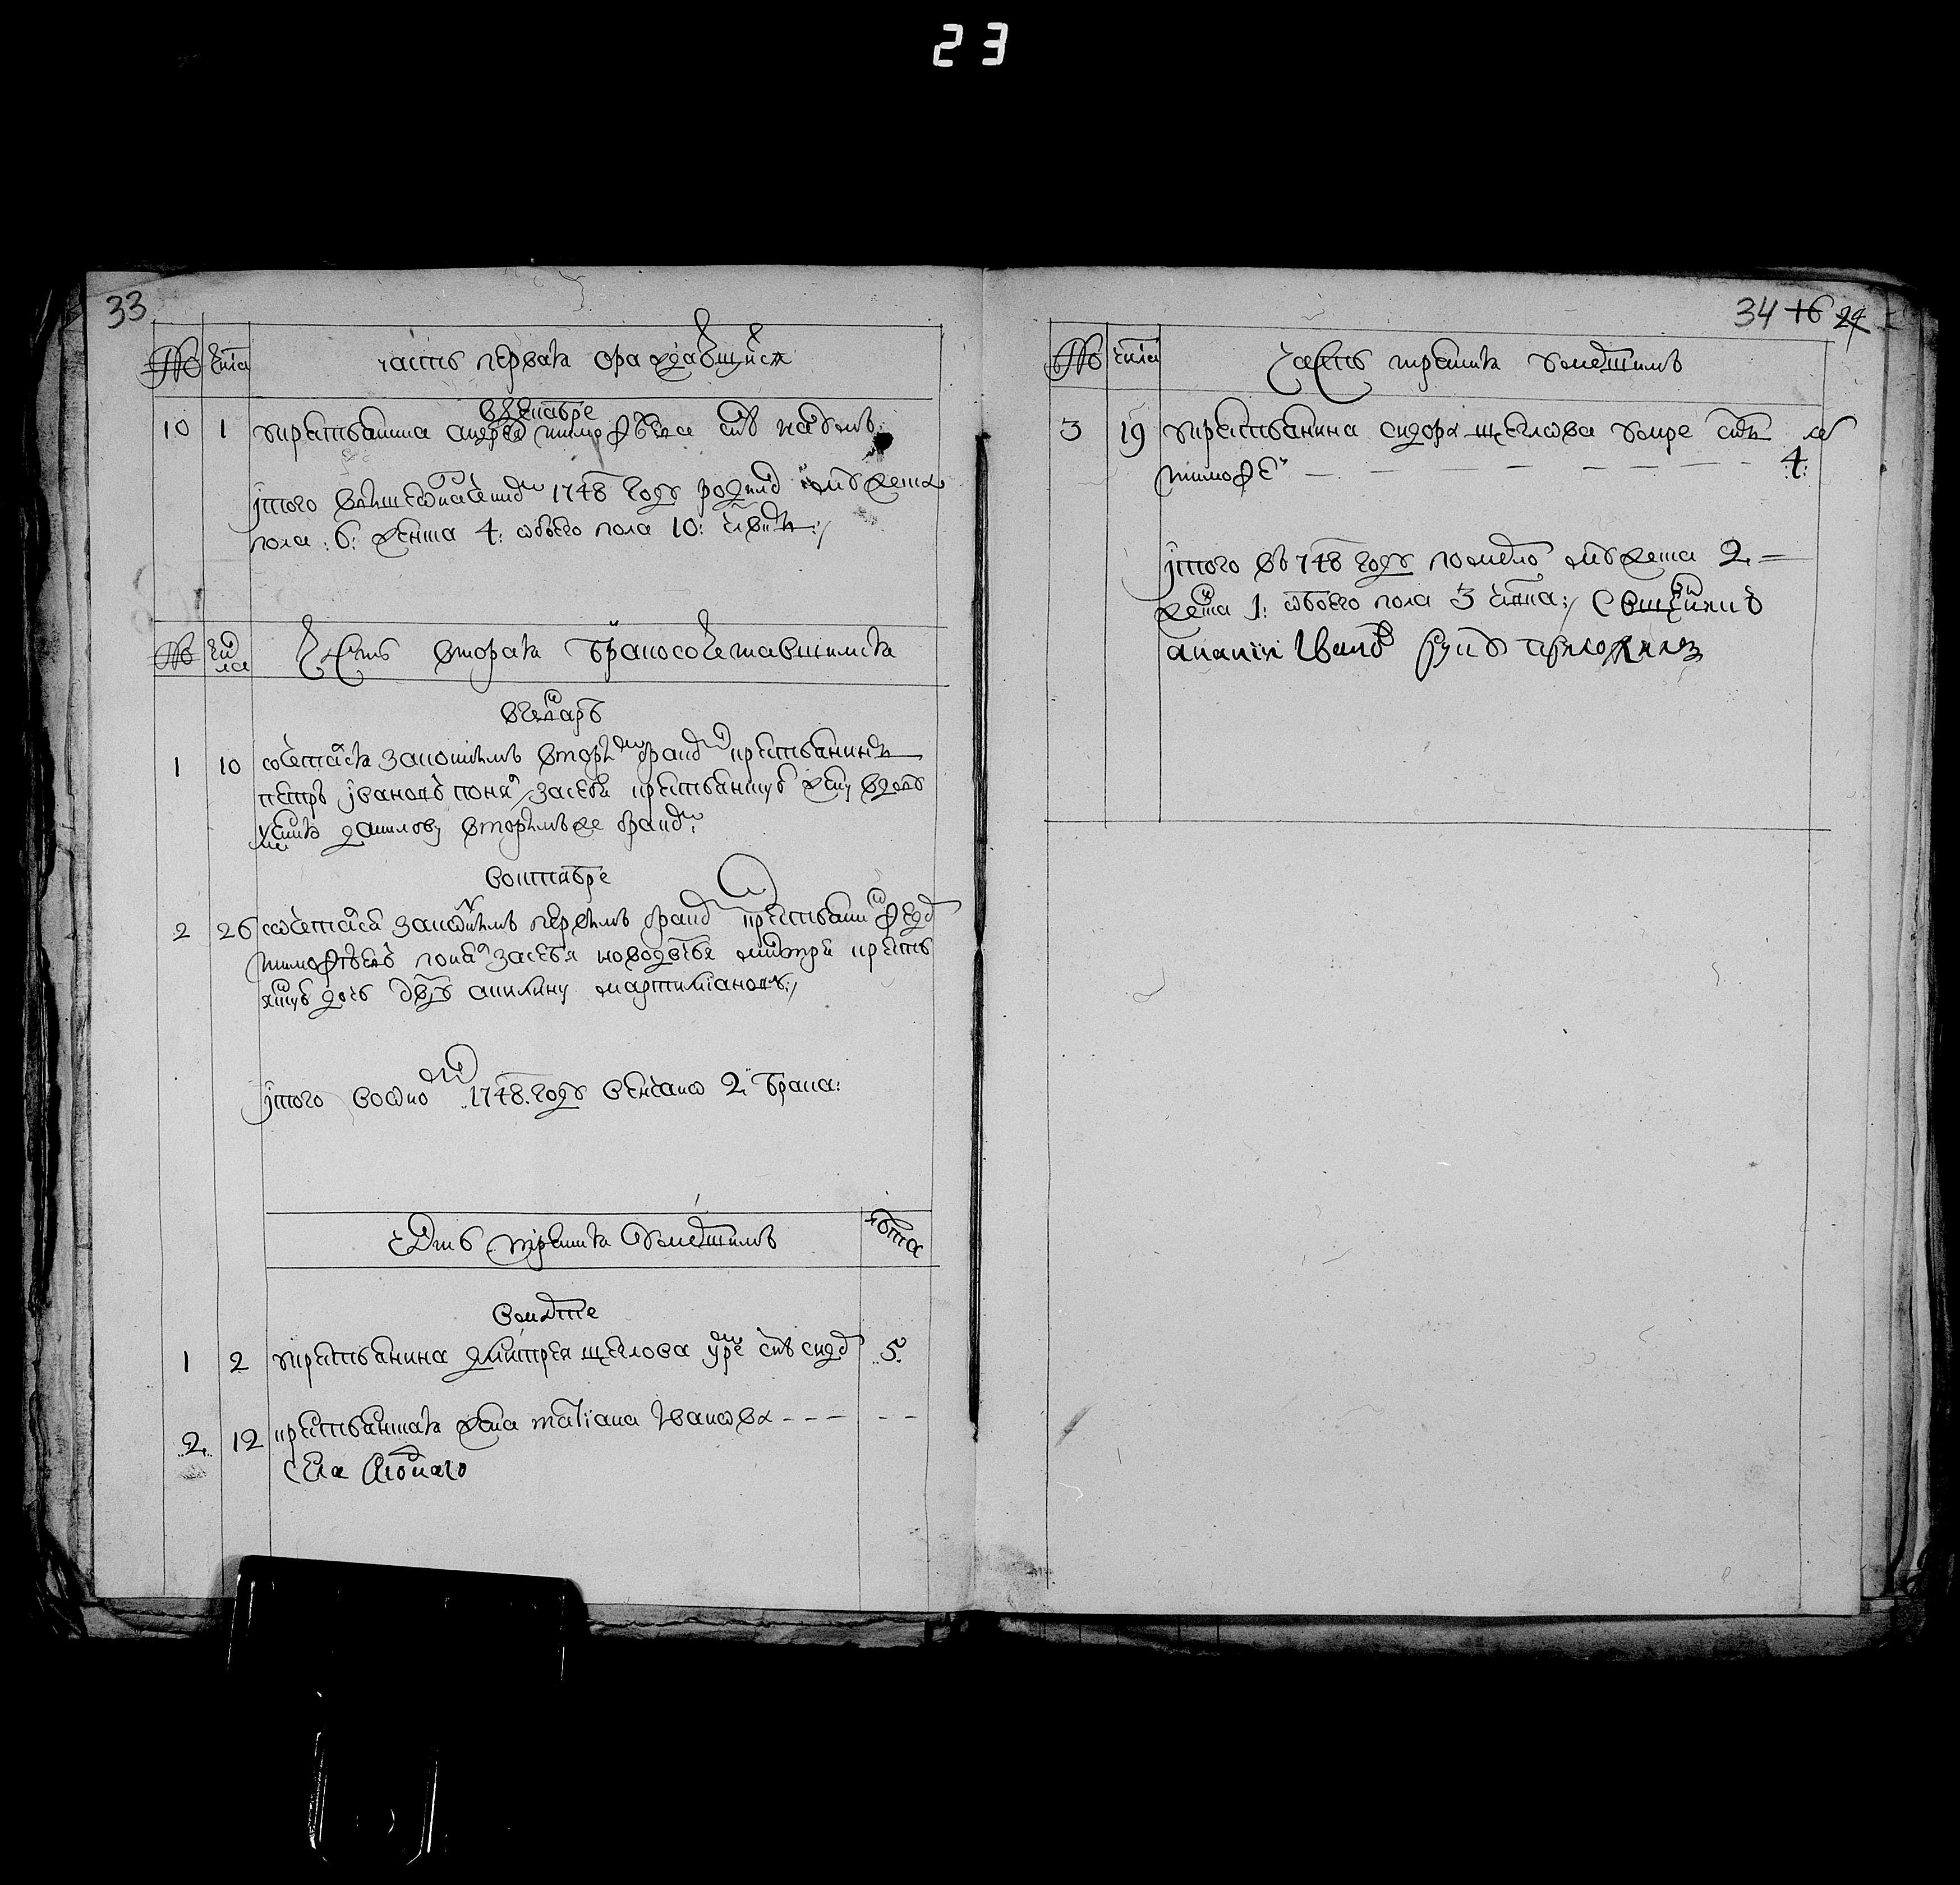 23
33
№ числа часть первая о раждающихся
в декабре
10 1 крестьянина андрея тимофеева снъ наумъ
итого 1748 году родилос мужеска
пола : 6 : женска 4 : обоего пола 10 : члвкъ :/
№ числа часть вторая бракосочетавшихся
в генваре
1 10 сочетася законнымъ вторымъ бракомъ крестьянинъ
петръ ивановъ понялъ за себя крестьянскую жену вдову
данилову вторымъ же бракомъ
в октябре
2 26 сочетася законнымъ первымъ бракомъ крестьянинъ федоръ
тимофеевъ понялъ за себя дмитрия кресть
янскую дочь девку акилину мартимianову :/
итого во оном 1748 году венчано 2 брака :
часть третия о умерших лета
в марте
1 2 крестьянина дмитрея щеглова умре снъ сидоръ 5
2 12 крестьянская жена татiана Иванова - - - - -
села
34 16 24
№ числа часть третия о умершихъ
3 19 крестьянина сидора щеглова умре снъ ле
тимофей — — — — — — — 4
итого в 748 году померло мужеска 2 =
женска 1 : обоего пола 3 члвка :/ Священникъ
ананiи Ивановъ руку приложилъ